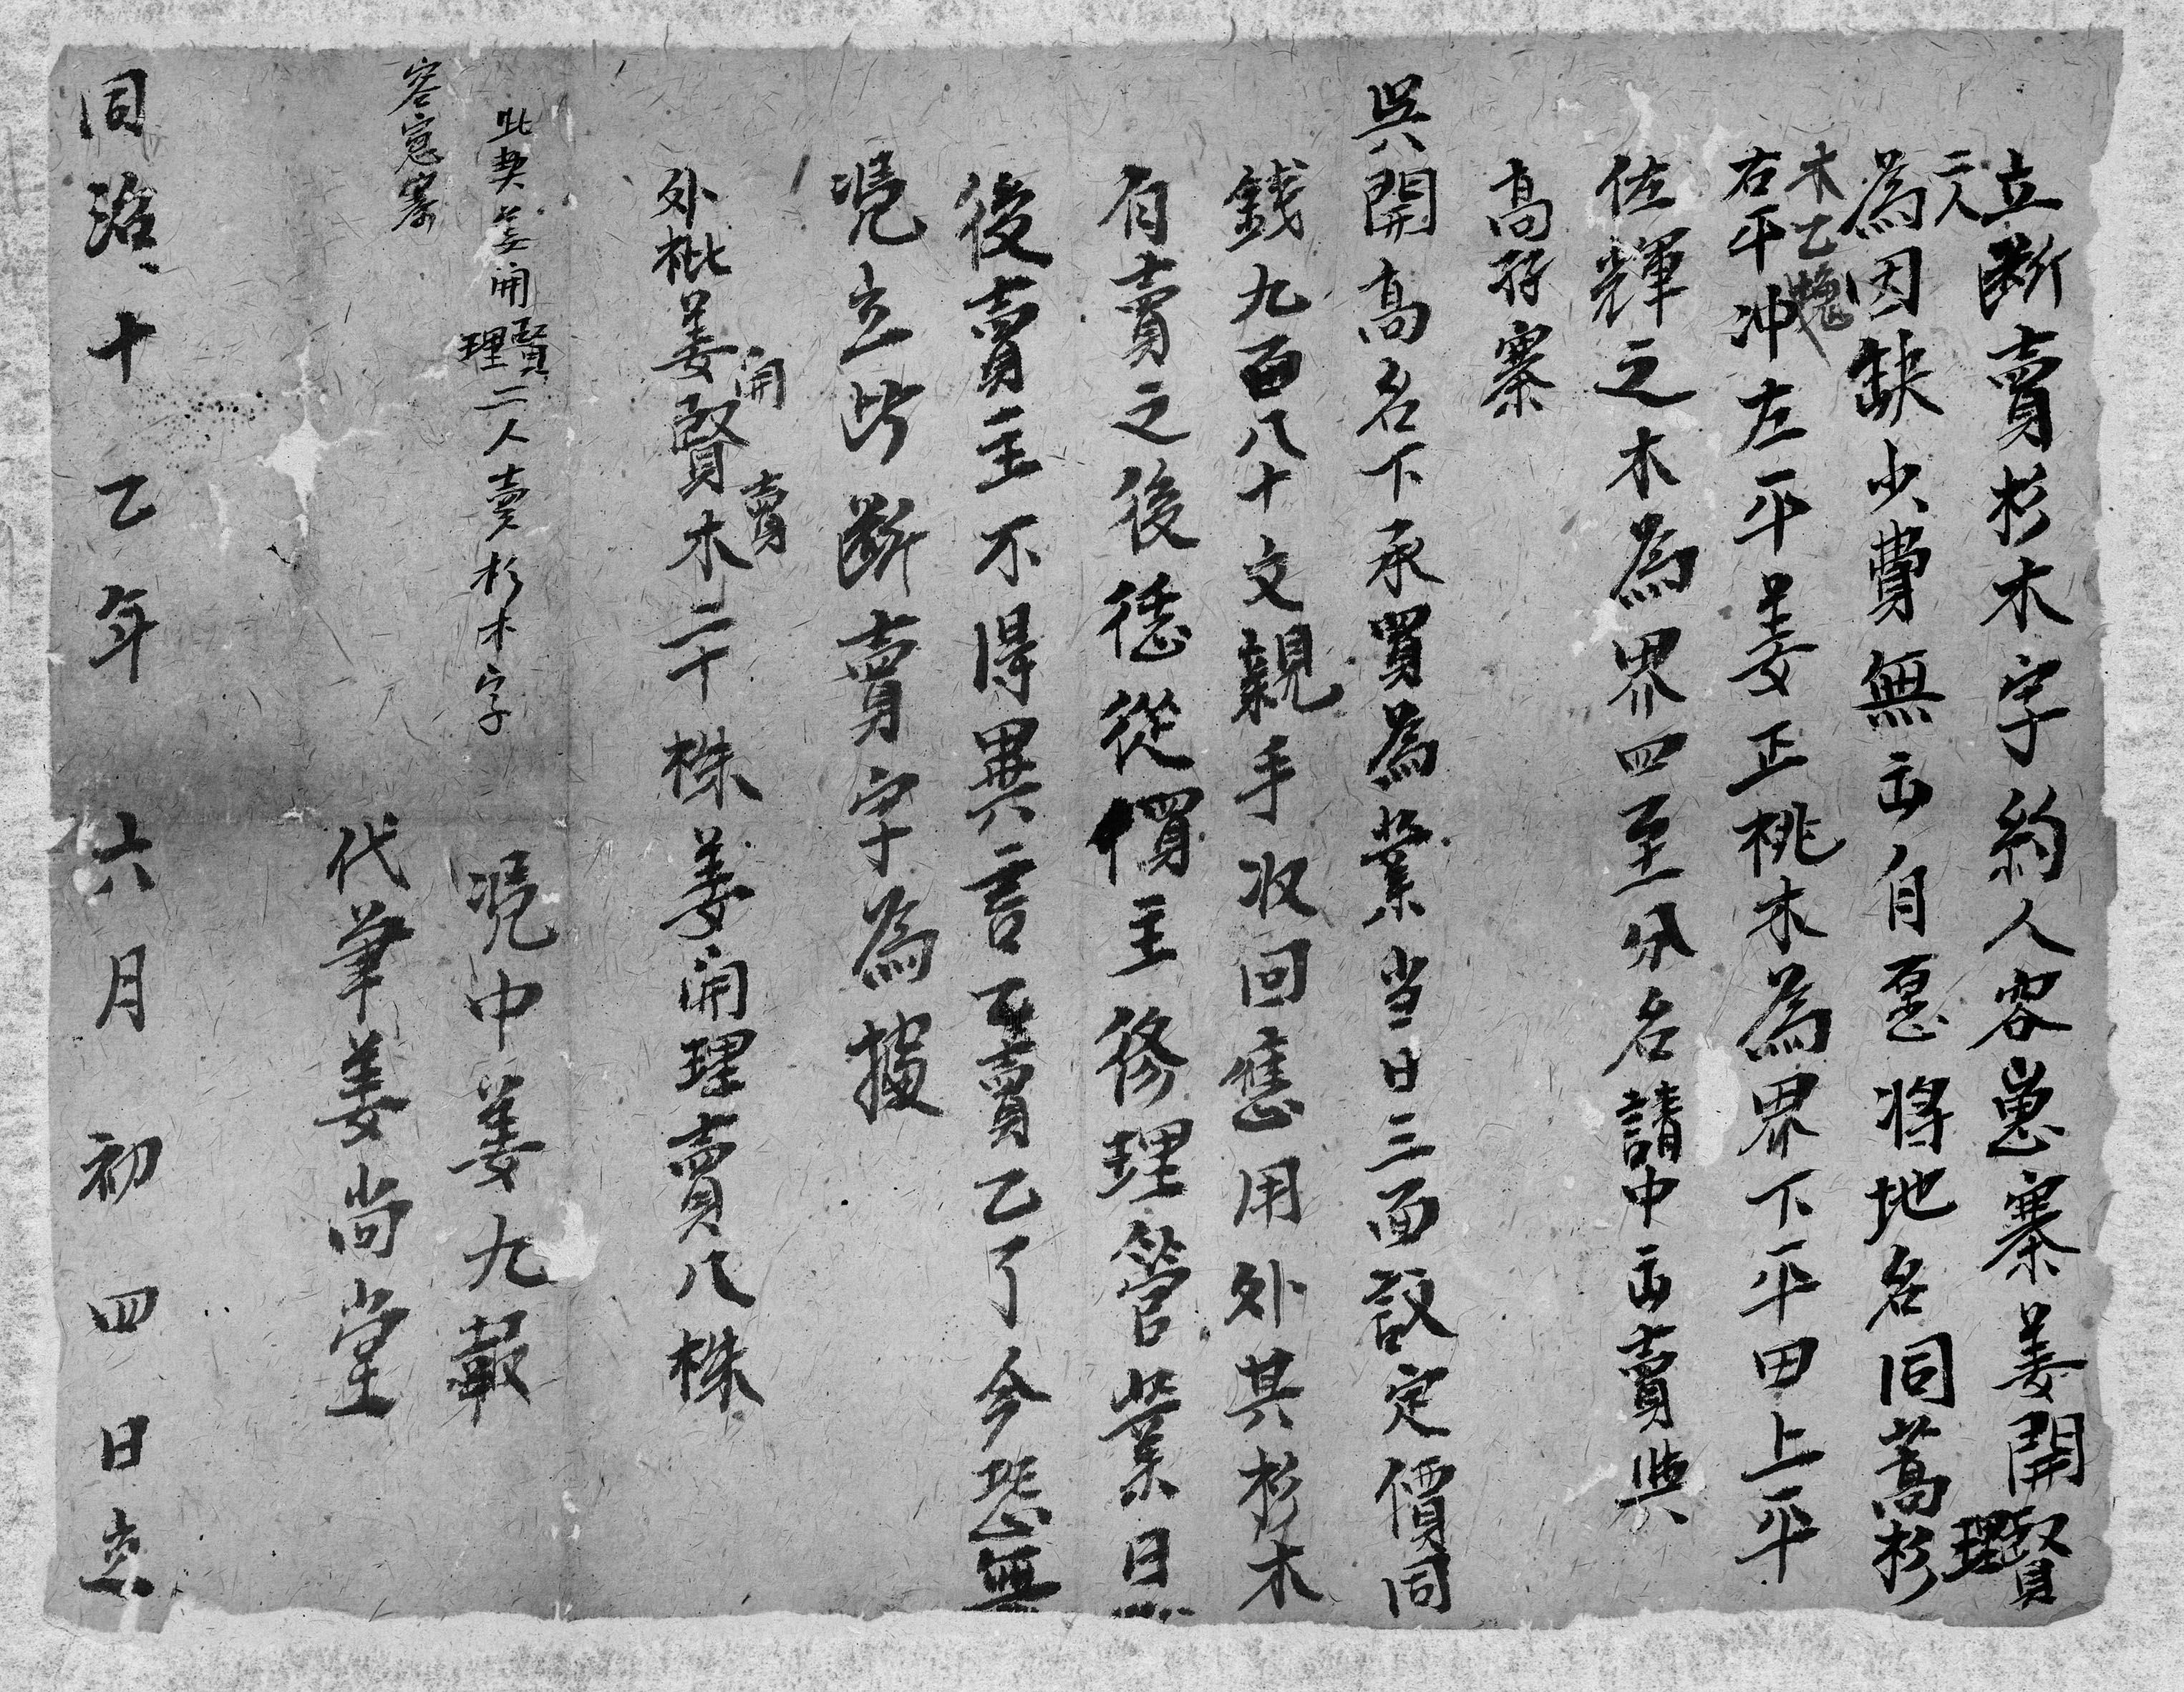 立斷賣杉木字約人容嵬寨姜開賢理
二人
為因缺少費無出自愿將地名同蒿杉
木乙塊
右平冲左平姜正桃木為界下平田上平
佐輝之木為界四至分名請中出賣與
高孖寨
吳開高名下承買為業当日三面議定價同
錢九百八十文親手收回應用外其杉木
自賣之後恁從買主修理管業日
後賣主不得異言乙賣乙了今恐無
凴立此斷賣字為據
外枇姜開賢賣木二十株姜開理賣八株
此契姜開賢理二人賣杉木字
容嵬寨
凴中姜九報
代筆姜尚堂
同治十乙年六月初四日立